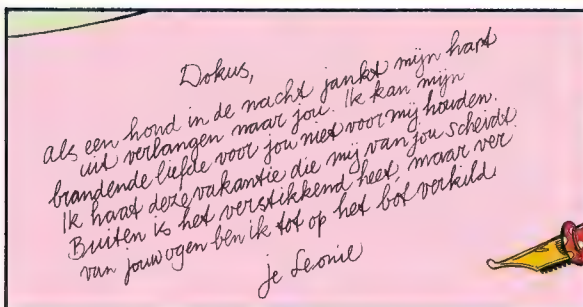 Dokus,
als een hond in de nacht jankt mijn hart
uit verlangen naar jou. Ik kan mijn
brandende liefde voor jou niet voor mij houden.
Ik haat deze vakantie die mij van jou scheidt.
Buiten is het verstikkend heet, maar ver
van jouw ogen ben ik tot op het bot verkild
je Leonie